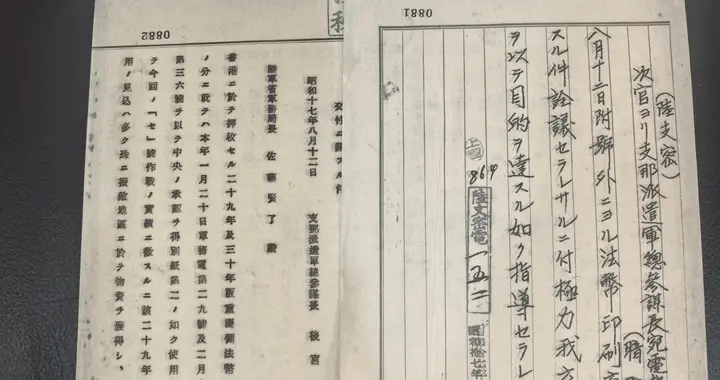 0881
(陸支密)
次官ヨリ支那派遣軍總参謀長宛電
(暗
八月十二日附號外ニヨル法幣印刷
スル件詮議セラレサルニ付極力我方
ヲ以テ目的ヲ達スル如ク指導セラレ
864
陸支密電一五二
昭和拾七年
0882
ニ關スル件
昭和十七年八月十二日 支那派遣軍總參謀長 後宮
陸軍省軍務局長 佐藤賢了殿
香港ニ於テ押收セル二十九年及三十年版重慶側法幣
ノ分ニ就テハ本年一月二十日軍務電第二九號及二月
第三六號ヲ以テ中央ノ承認ヲ得別紙第二ノ如ク使用
テ今回ノ「セ」號作戰ノ實績ニ徵スルニ該二十九年
用ノ見込ハ多ク殊ニ敵地區ニ於テ物資ヲ獲得シ、